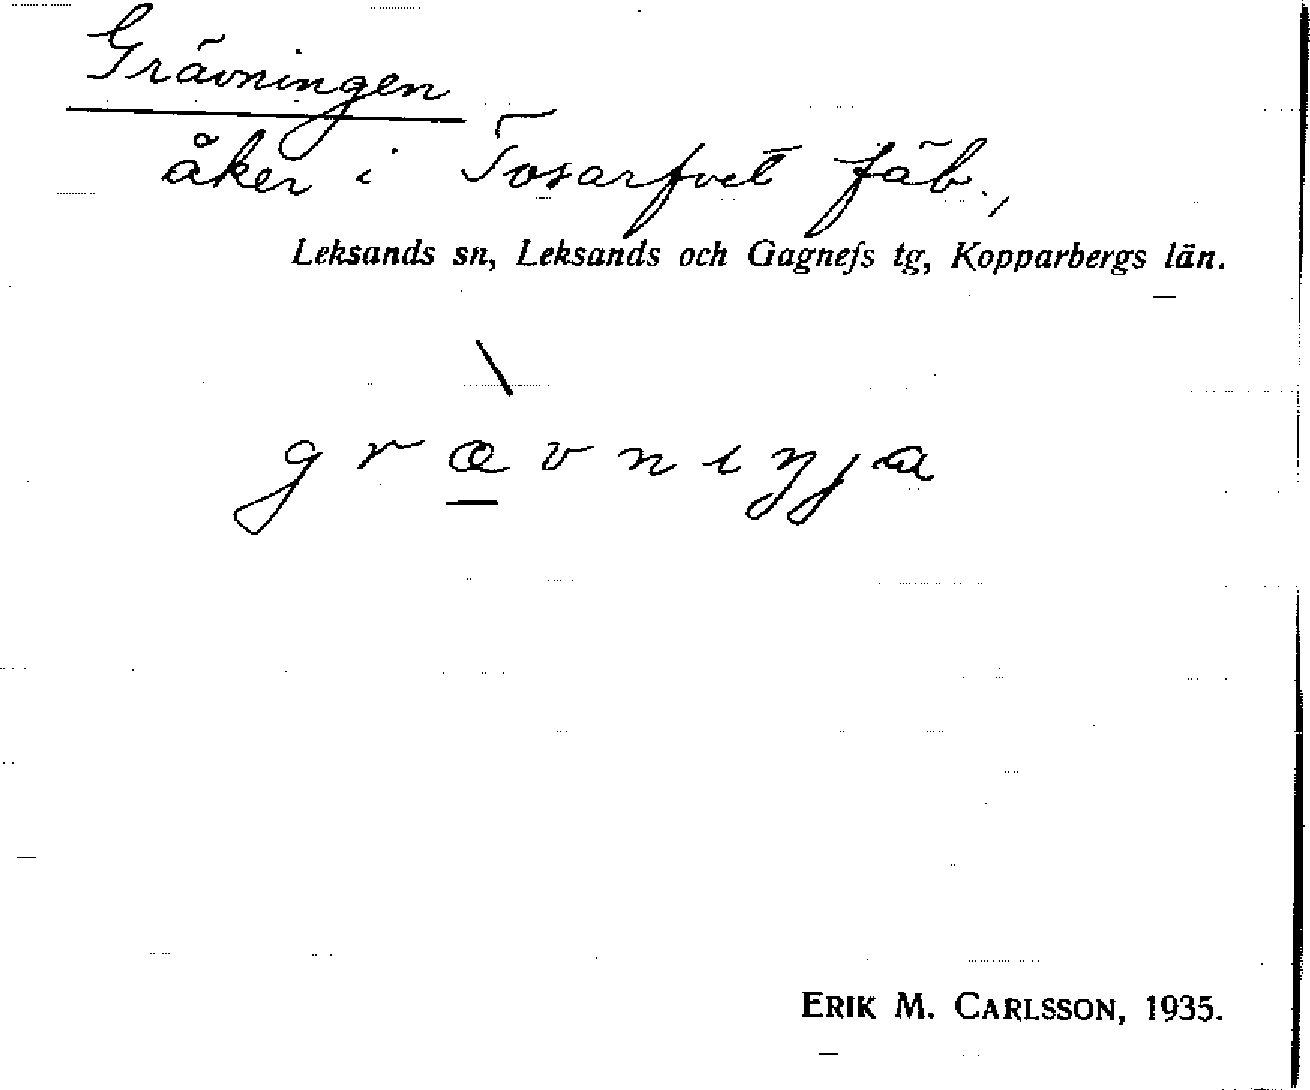 Grävningen
åker i Tosarfvet fäb.,
Leksands sn, Leksands och Gagnefs tg, Kopparbergs län.
\
g r æ v n ı ŋ j a
ERIK M. CARLSSON, 1935.